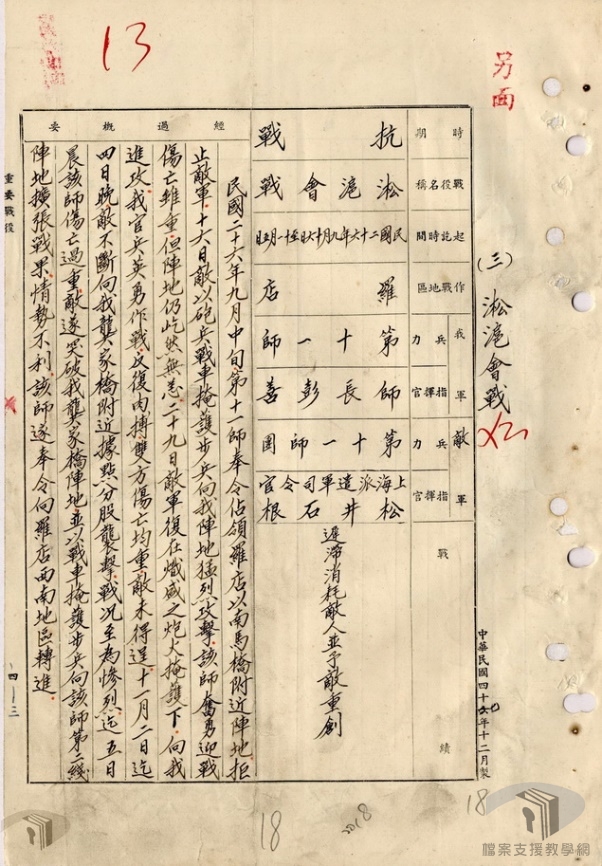 13
另面
(三) 淞滬會戰
中華民國四十年十二月製
時期 抗戰
戰役名稱 淞滬會戰
起訖時間 民國二十六年九月十六日至十一月五日
作戰地區 羅店
我軍 兵力 第十一師
指揮官 師長彭善
敵軍 兵力 第十一師團
指揮官 上海派遣軍司令官松井石根
戰績 遲滯消耗敵人並予敵重創
經過概要
民國二十六年九月中旬,第十一師奉令佔領羅店以南馬橋附近陣地,拒
止敵軍,十六日敵以砲兵戰車掩護步兵向我陣地猛烈攻擊,該師奮勇迎戰
傷亡雖重,但陣地仍屹然無恙,二十九日敵軍復在熾盛之炮火掩護下,向我
進攻,我官兵英勇作戰,反復肉搏,雙方傷亡均重,敵未得逞,十一月二日迄
四日晚,敵不斷向我龔家橋附近據點分股襲擊,戰況至為慘烈,迄五日
晨該師傷亡過重,敵遂突破我龔家橋陣地,並以戰車掩護步兵向該師第二線
陣地擴張戰果,情勢不利,該師遂奉令向羅店西南地區轉進。
重要戰役
四—三
18
18
檔案支援教學網